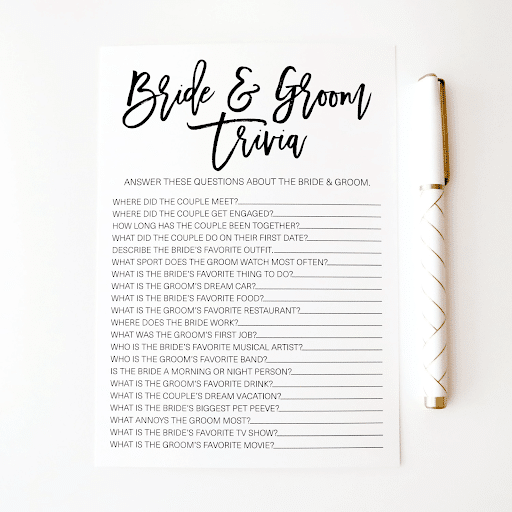 Bride & Groom
Trivia
ANSWER THESE QUESTIONS ABOUT THE BRIDE & GROOM.
WHERE DID THE COUPLE MEET?
WHERE DID THE COUPLE GET ENGAGED?
HOW LONG HAS THE COUPLE BEEN TOGETHER?
WHAT DID THE COUPLE DO ON THEIR FIRST DATE?
DESCRIBE THE BRIDE'S FAVORITE OUTFIT.
WHAT SPORT DOES THE GROOM WATCH MOST OFTEN?
WHAT IS THE BRIDE'S FAVORITE THING TO DO?
WHAT IS THE GROOM'S DREAM CAR?
WHAT IS THE BRIDE'S FAVORITE FOOD?
WHAT IS THE GROOM'S FAVORITE RESTAURANT?
WHERE DOES THE BRIDE WORK?
WHAT WAS THE GROOM'S FIRST JOB?
WHO IS THE BRIDE'S FAVORITE MUSICAL ARTIST?
WHO IS THE GROOM'S FAVORITE BAND?
IS THE BRIDE A MORNING OR NIGHT PERSON?
WHAT IS THE GROOM'S FAVORITE DRINK?
WHAT IS THE COUPLE'S DREAM VACATION?
WHAT IS THE BRIDE'S BIGGEST PET PEEVE?
WHAT ANNOYS THE GROOM MOST?
WHAT IS THE BRIDE'S FAVORITE TV SHOW?
WHAT IS THE GROOM'S FAVORITE MOVIE?